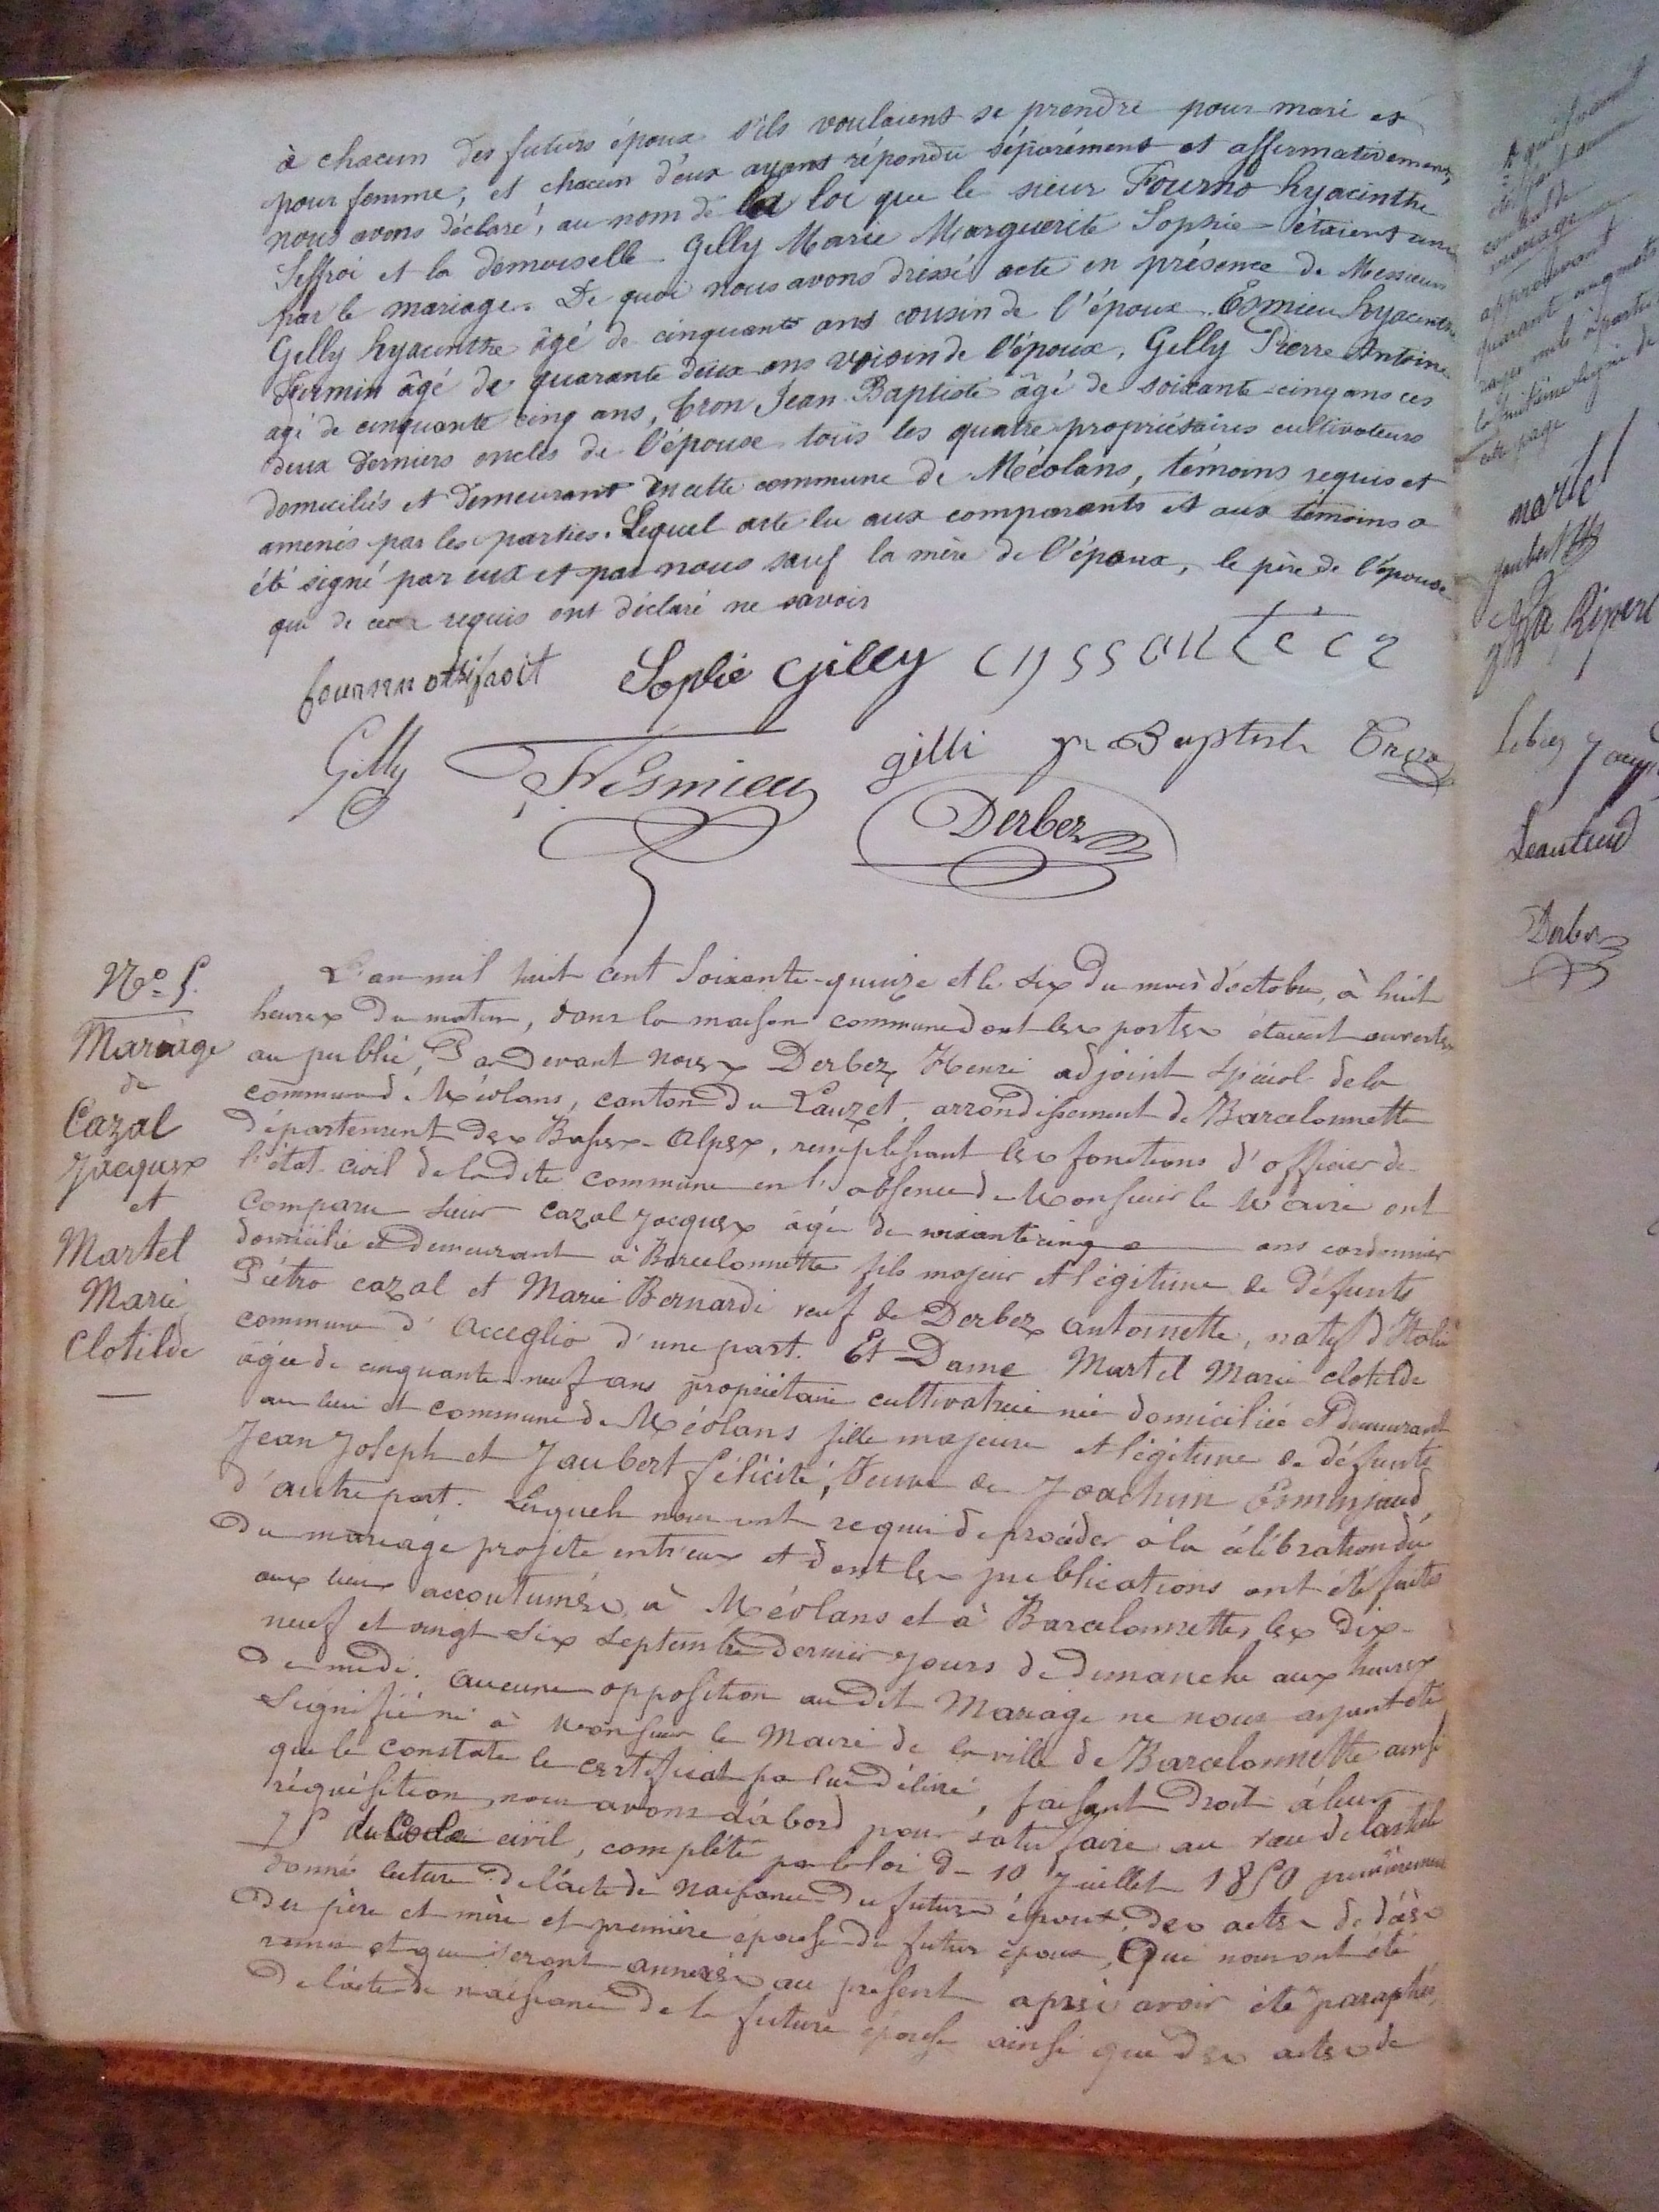 à chacun des futurs époux s'ils voulaient se prendre pour mari et
pour femme, et chacun d'eux ayant répondu séparément et affirmativement,
nous avons déclaré, au nom de la loi que le sieur Fourno hyacinthe
Seffroi et la demoiselle Gelly Marie Marguerite Sophie étaient unis
par le mariage. De quoi nous avons dressé acte en présence de Messieurs
Gelly hyacinthe âgé de cinquante ans cousin de l'époux. Esmieu hyacinthe
Firmin âgé de quarante deux ans voisin de l'époux, Gelly Pierre Antoine
agé de cinquante cinq ans, Tron Jean Baptiste âgé de soixante-cinq ans ces
deux derniers oncles de l'épouse tous les quatre propriétaires cultivateurs
domiciliés et demeurant en cette commune de Méolans, témoins requis et
amenés par les parties. Lequel acte lu aux comparants et aux témoins a
été signé par eux et par nous sauf la mère de l'époux, le père de l'épouse
qui de ce requis ont déclaré ne savoir
Sophie Gilly
Gilly F Esmieu gilli Baptiste Tron
Derbez
N° 5.
Mariage
de
Cazal
Jacques
et
Martel
Marie
Clotilde
L'an mil huit cent soixante-quinze et le six du mois d'octobre, à huit
heures du matin, dans la maison commune dont les portes étaient ouvertes
au public, Par devant nous Derbez Henri adjoint spécial de la
commune de Méolans, canton du Lauzet, arrondissement de Barcelonnette
département des Basses-Alpes, remplissant les fonctions d'officier de
l'état-civil de la dite commune en l'absence de Monsieur le Maire ont
comparu sieur Cazal Jacques âgé de soixante cinq ans cordonnier
domicilié et demeurant à Barcelonnette fils majeur et légitime de défunts
Piétro cazal et Marie Bernardi veuf de Derbez antoinette, natif d'Italie
commune d'Acceglio d'une part. Et Dame Martel Marie clotilde
âgée de cinquante-neuf ans propriétaire cultivatrice née domiciliée et demeurant
au lieu et commune de Méolans fille majeure et légitime de défunts
Jean Joseph et Jaubert félicité, Veuve de Joachim Esminjaud,
d'autre part. Lesquels nous ont requis de procéder à la célébration du
du mariage projeté entr'eux et dont les publications ont été faites
aux lieux accoutumés, à Méolans et à Barcelonnette, les dix-
neuf et vingt six septembre dernier jours de dimanche aux heures
de midi. aucune opposition au dit Mariage ne nous ayant été
signifiée ni à Monsieur le Maire de la ville de Barcelonnette ainsi
que le constate le certificat par lui délivré, faisant droit à leur
réquisition, nous avons d'abord pour satisfaire au vœu de l'article
75 du Code civil, complété par la loi du 10 Juillet 1850 premièrement
donné lecture de l'acte de naissance du futur époux, des actes de décès
des père et mère et première épouse du futur époux, Qui nous ont été
remis et qui seront annexés au présent après avoir été paraphés,
de l'acte de naissance de la future épouse ainsi que des actes de
contrat de
mariage
approuvant
quarante
cette page
martel
Ripert
Derbez